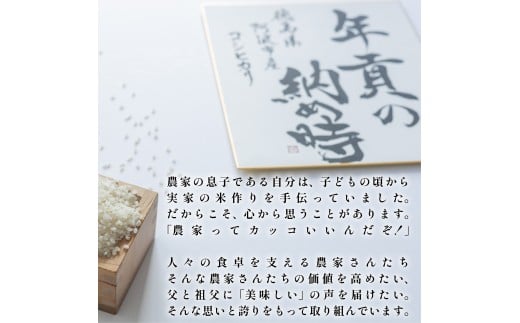 年貢の
納め時
徳島県
阿波市産
コシヒカリ
農家の息子である自分は、子どもの頃から
実家の米作りを手伝っていました。
だからこそ、心から思うことがあります。
「農家ってカッコいいんだぞ!」
人々の食卓を支える農家さんたち
そんな農家さんたちの価値を高めたい、
父と祖父に「美味しい」の声を届けたい。
そんな思いと誇りをもって取り組んでいます。